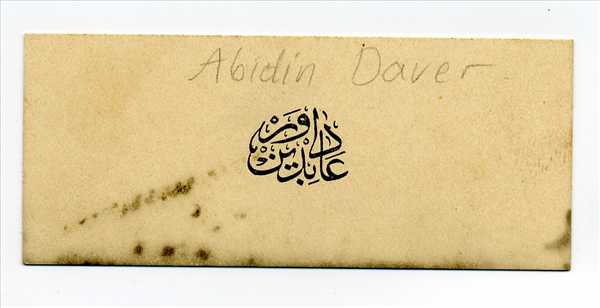 Abidin Daver
عابدين داور